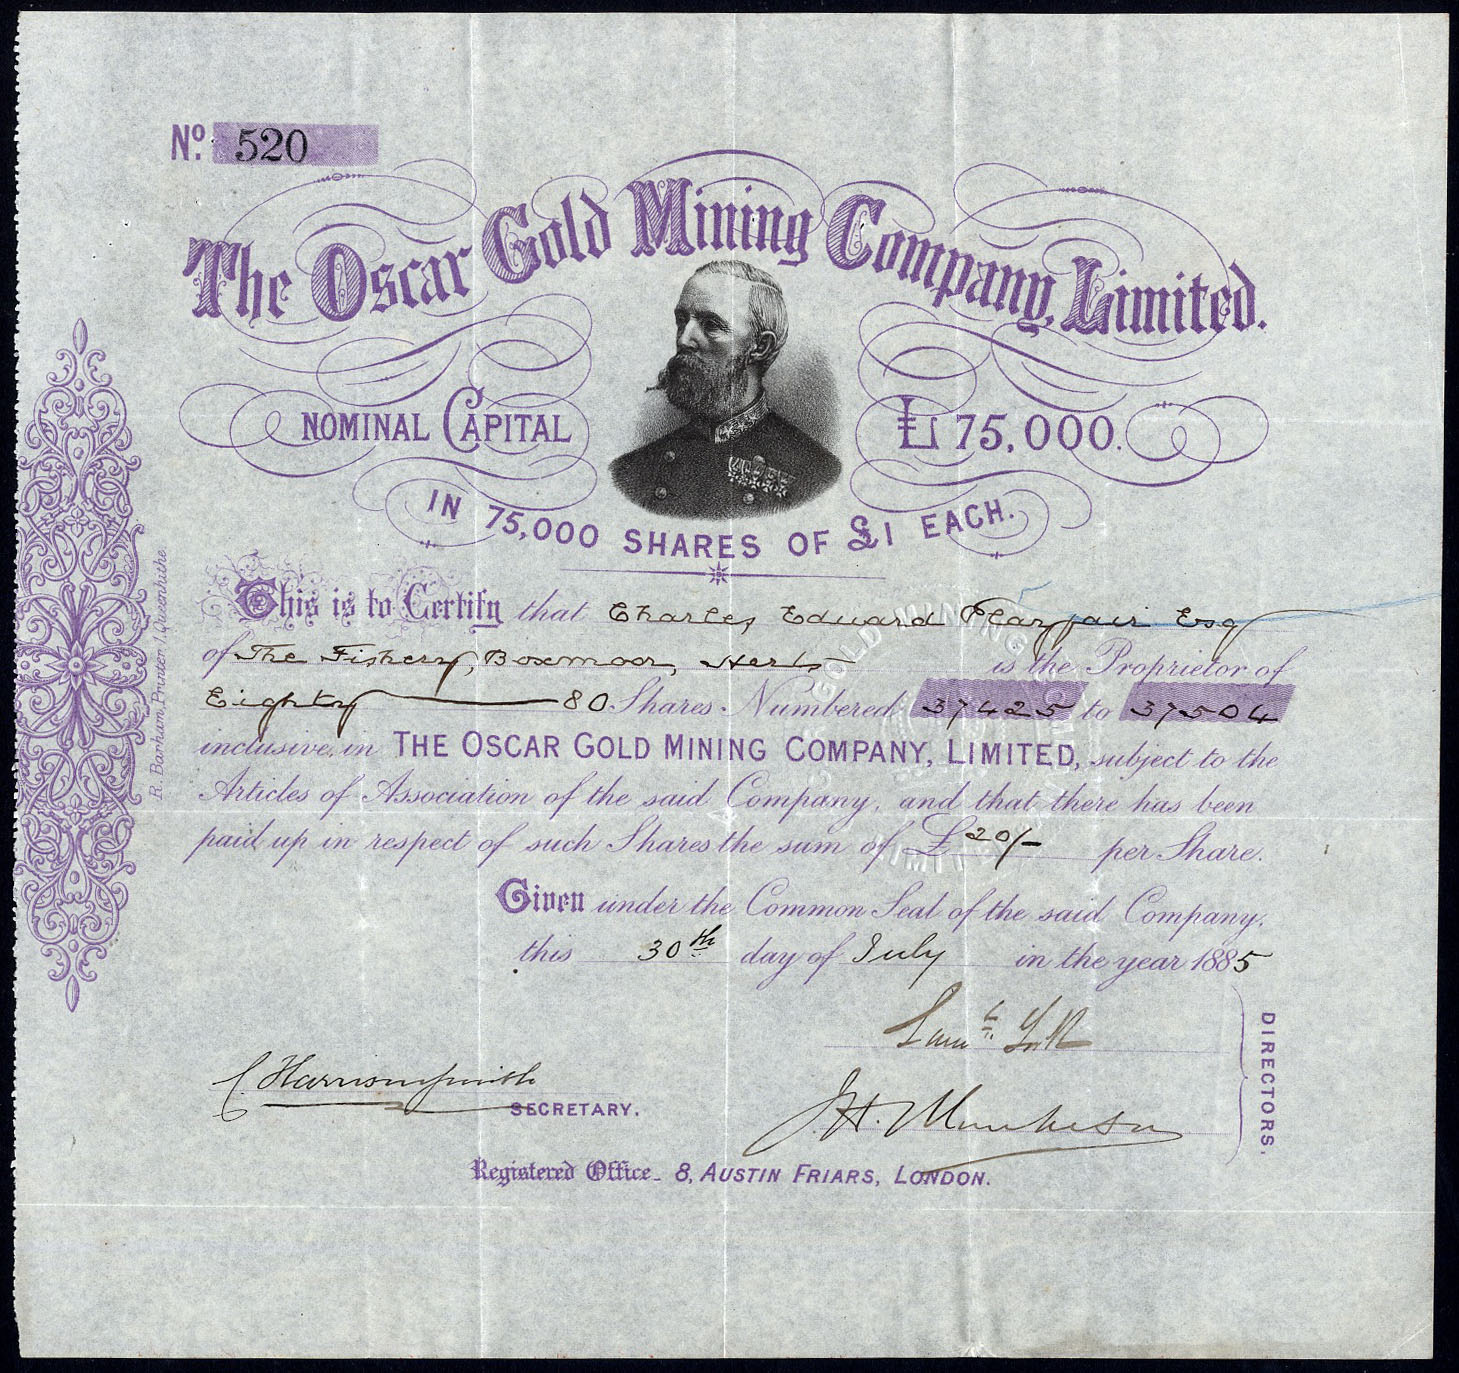 No. 520
The Oscar Gold Mining Company, Limited.
NOMINAL CAPITAL £75,000.
IN 75,000 SHARES OF £1 EACH.
This is to Certify that Charles Eduard Playfair Esq
of The Fishery, Boxmoor, Herts is the Proprietor of
Eighty 80 Shares Numbered 37425 to 37504
inclusive, in THE OSCAR GOLD MINING COMPANY, LIMITED, subject to the
Articles of Association of the said Company, and that there has been
paid up in respect of such Shares the sum of £ 20/- per Share.
Given under the Common Seal of the said Company,
this 30th day of July in the year 1885
C. Harrison Smith
SECRETARY.
J H. Murchison
DIRECTORS.
Registered Office_ 8, AUSTIN FRIARS, LONDON.
R. Barham, Printer, Queenhithe
GOLD MINING